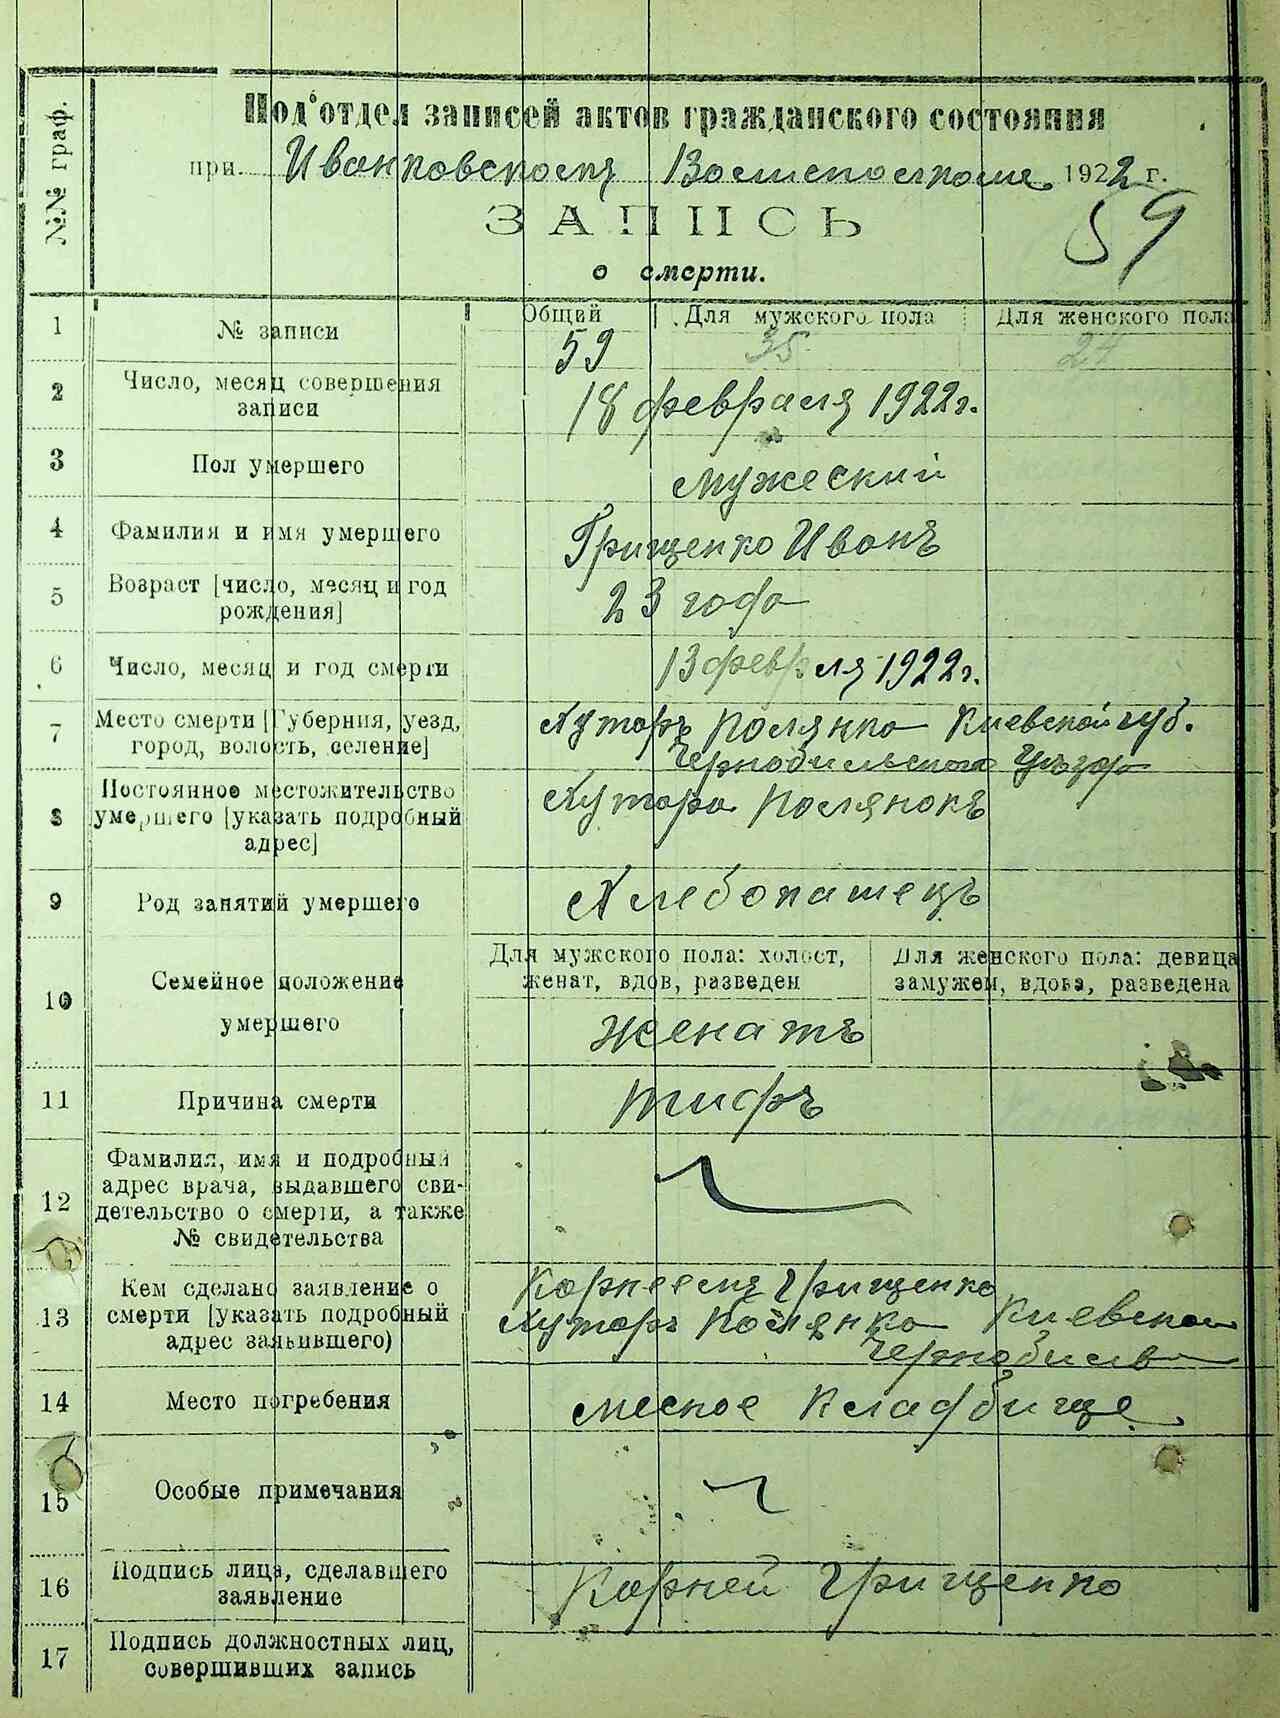 №№ граф.
Под'отдел записей актов гражданского состояния
при Иванковскомъ Волисполкоме 1922 г.
59
ЗАПИСЬ
о смерти.
1 № записи Общий Для мужского пола Для женского пола
59 35 24
2 Число, месяц совершения
записи
18 февраля 1922 г.
3 Пол умершего мужеский
4 Фамилия и имя умершего Грищенко Иванъ
5 Возраст [число, месяц и год
рождения]
23 года
6 Число, месяц и год смерти 13 февраля 1922 г.
7 Место смерти [Губерния, уезд,
город, волость, селение]
Хуторъ Полянка Киевской губ.
Чернобильского уезда
8 Постоянное местожительство
умершего [указать подробный
адрес]
Хутора Полянокъ
9 Род занятий умершего Хлебопашецъ
10 Семейное положение
умершего
Для мужского пола: холост,
женат, вдов, разведен
Для женского пола: девица
замужем, вдова, разведена
женатъ
11 Причина смерти тифъ
12 Фамилия, имя и подробный
адрес врача, выдавшего сви-
детельство о смерти, а также
№ свидетельства
13 Кем сделано заявление о
смерти [указать подробный
адрес заявившего)
Корнеемъ Грищенко
Хуторъ Полянка Киевской
Чернобильс
14 Место погребения месное Кладбище
15 Особые примечания
16 Подпись лица, сделавшего
заявление
Корней Грищенко
17 Подпись должностных лиц,
совершивших запись